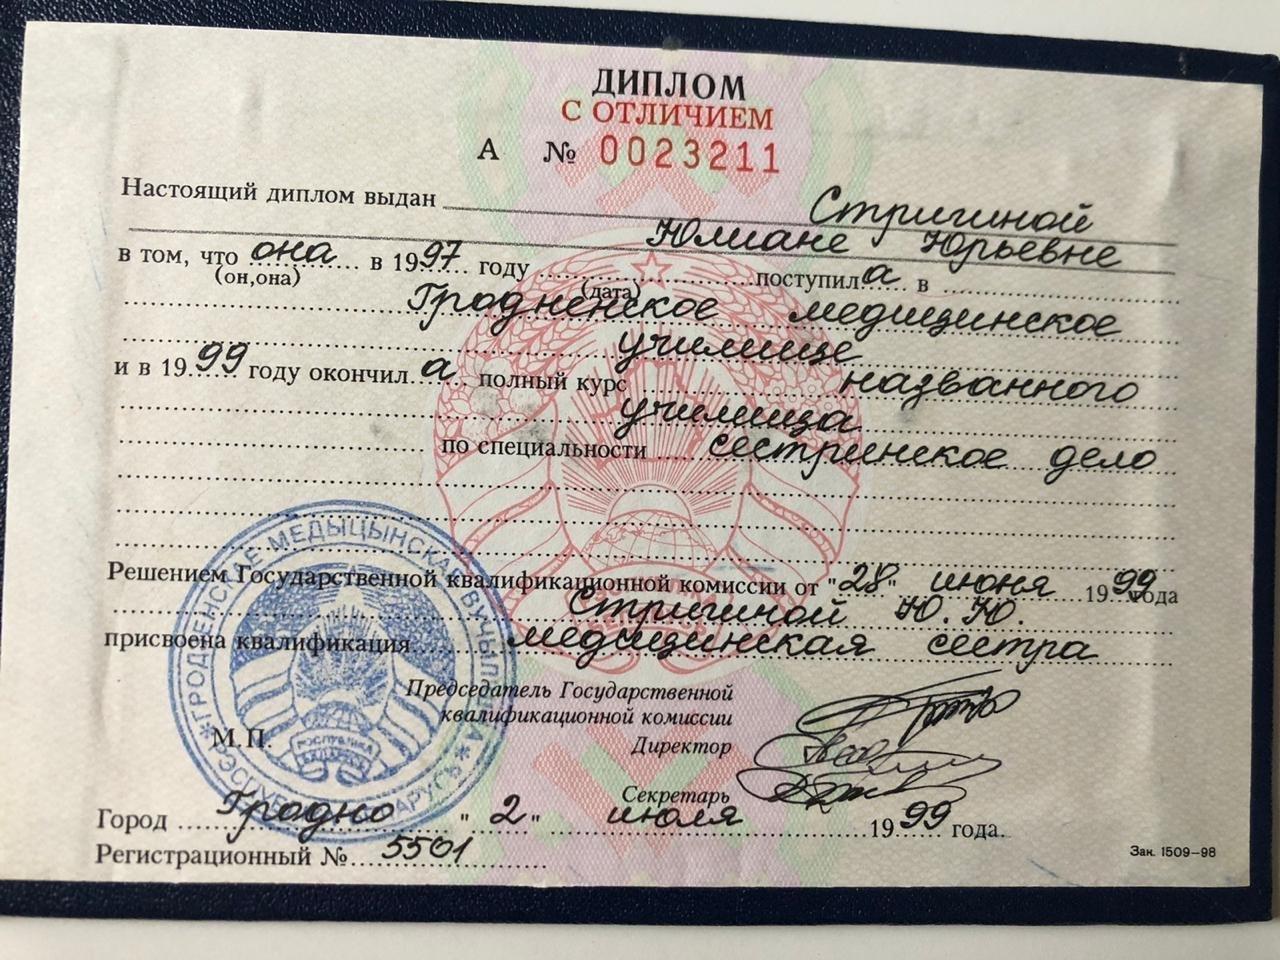 ДИПЛОМ
С ОТЛИЧИЕМ
А № 0023211
Настоящий диплом выдан Стригиной
Юлиане Юрьевне
в том, что она в 1997 году поступила в
(он,она) (дата)
Гродненское медицинское
училище
и в 1999 году окончила полный курс названного
училища
по специальности сестринское дело
Решением Государственной квалификационной комиссии от "28" июня 1999 года
Стригиной Ю. Ю.
присвоена квалификация медицинская сестра
Председатель Государственной
квалификационной комиссии
Директор
М. П.
Секретарь
Город Гродно "2" июля 1999 года.
Регистрационный № 5501
Зак. 1509—98
ГРОДЗЕНСКАЕ МЕДЫЦЫНСКАЕ ВУЧЫЛІШЧА
РЭСПУБЛІКА БЕЛАРУСЬ